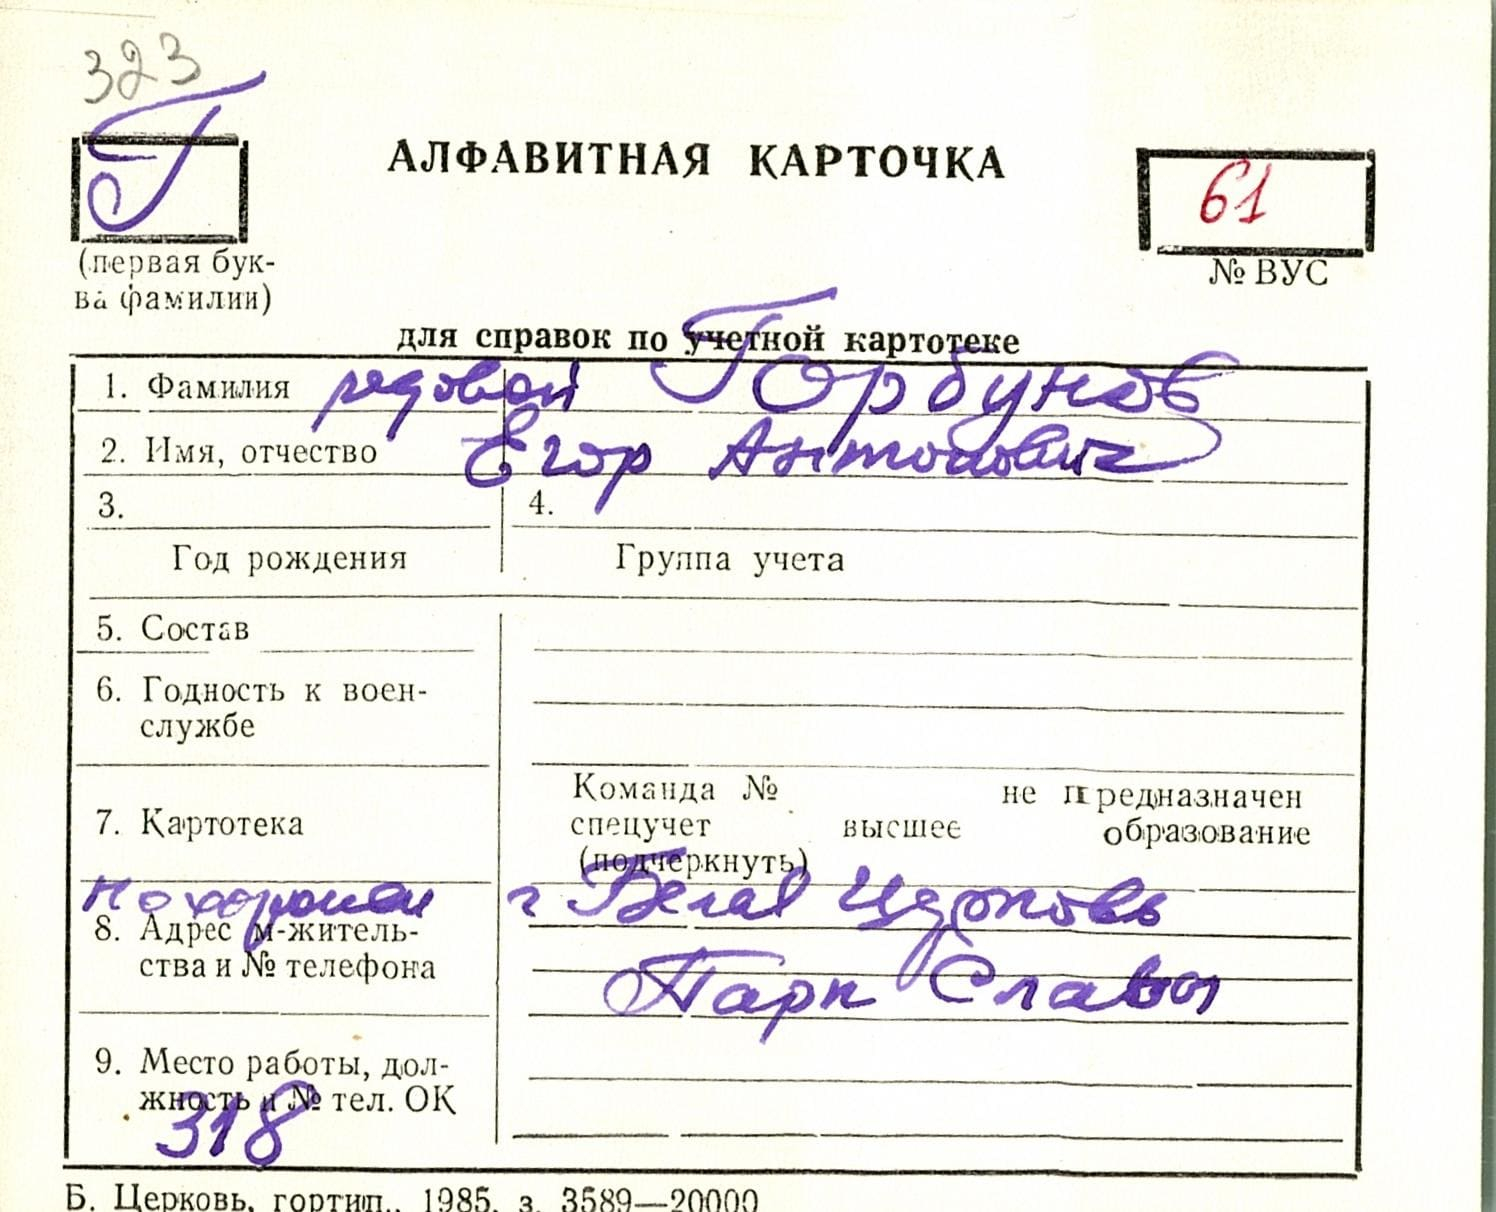 323
Г
АЛФАВИТНАЯ КАРТОЧКА
61
(первая бук-
ва фамилии)
№ ВУС
для справок по учетной картотеке
1. Фамилия рядовой Горбунов
2. Имя, отчество Егор Антонович
3. 4.
Год рождения Группа учета
5. Состав
6. Годность к воен-
службе
Команда № не предназначен
7. Картотека спецучет высшее образование
(подчеркнуть)
похоронен г Белая Церковь
8. Адрес м-житель-
ства и № телефона
Парк Славы
9. Место работы, дол-
жность и № тел. ОК
318
Б. Церковь, гортип., 1985, з. 3589—20000